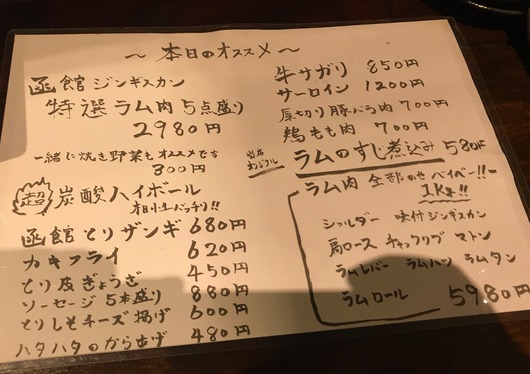 ～本日のオススメ～
函館ジンギスカン
特選ラム肉5点盛り
2980円
一緒に焼き野菜もオススメです
300円
超 炭酸ハイボール
函館とりザンギ 680円
カキフライ 620円
とり皮ぎょうざ 450円
ソーセージ5本盛り 880円
とりしそチーズ揚げ 600円
ハタハタのから揚げ 480円
牛サガリ 850円
サーロイン 1200円
厚切り豚バラ肉 700円
鶏もも肉 700円
当店オリジナル
ラムのすじ煮込み 580円
ラム肉 全部のせベイベー!!
1Kg!!
ショルダー 味付ジンギスカン
肩ロース チャックリブ マトン
ラムレバー ラムハツ ラムタン
ラムロール 5980円